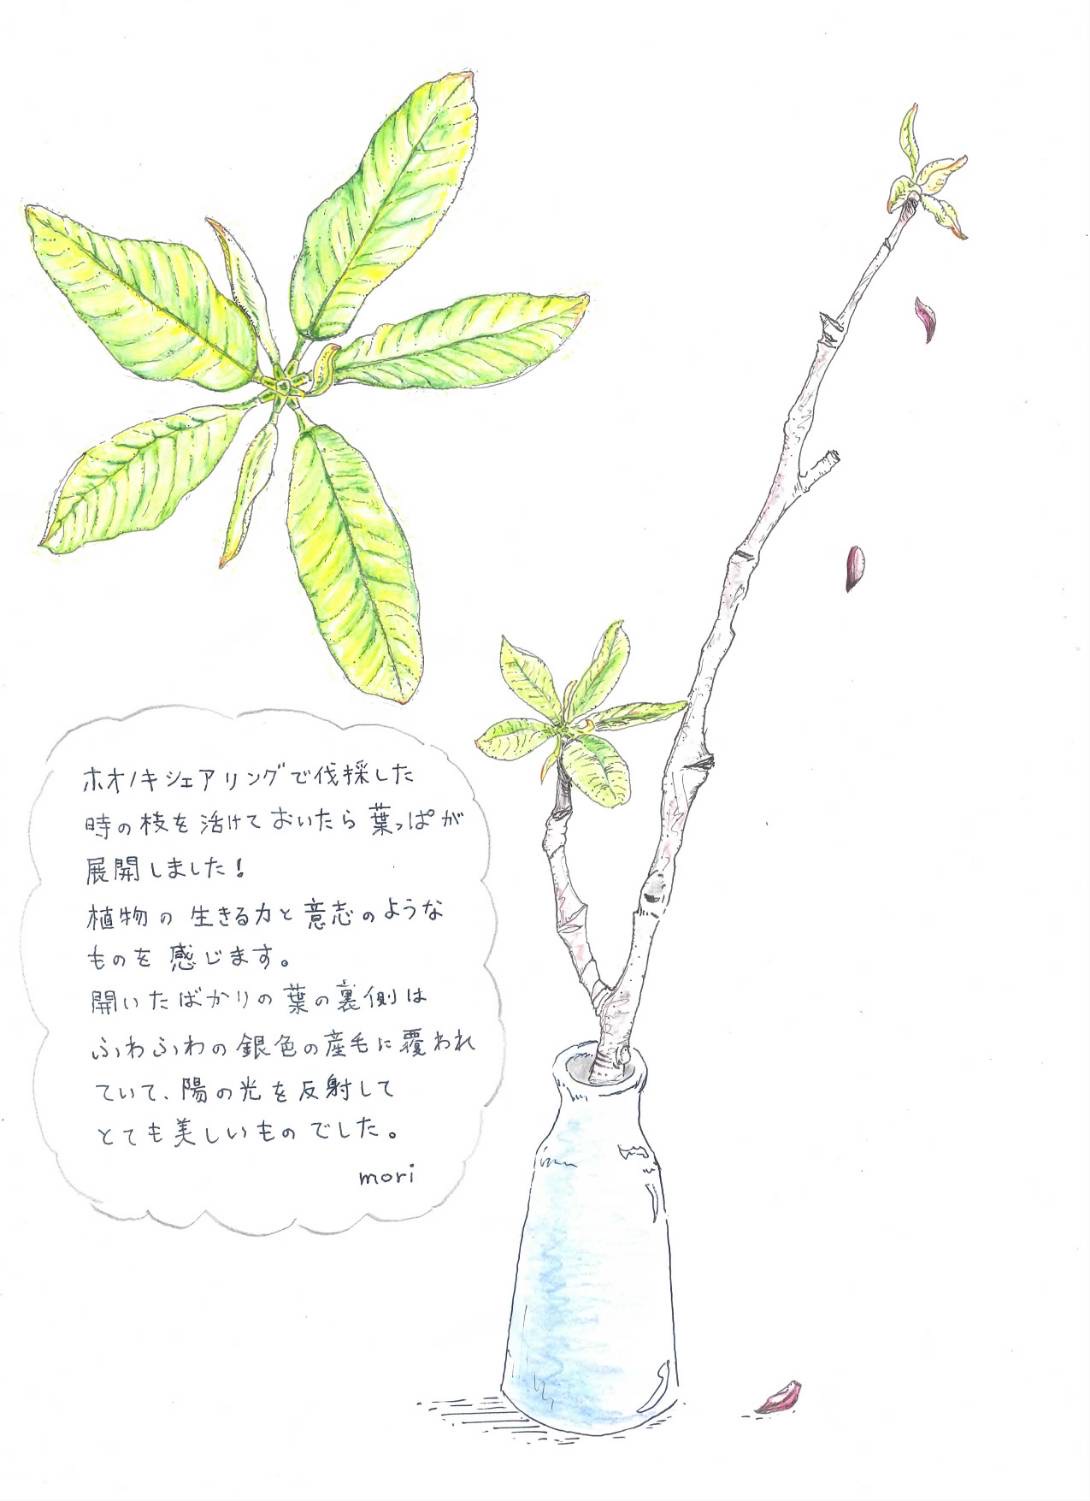 ホオノキシェアリングで伐採した
時の枝を活けておいたら葉っぱが
展開しました!
植物の生きる力と意志のような
ものを感じます。
開いたばかりの葉の裏側は
ふわふわの銀色の産毛に覆われ
ていて、陽の光を反射して
とても美しいものでした。
mori